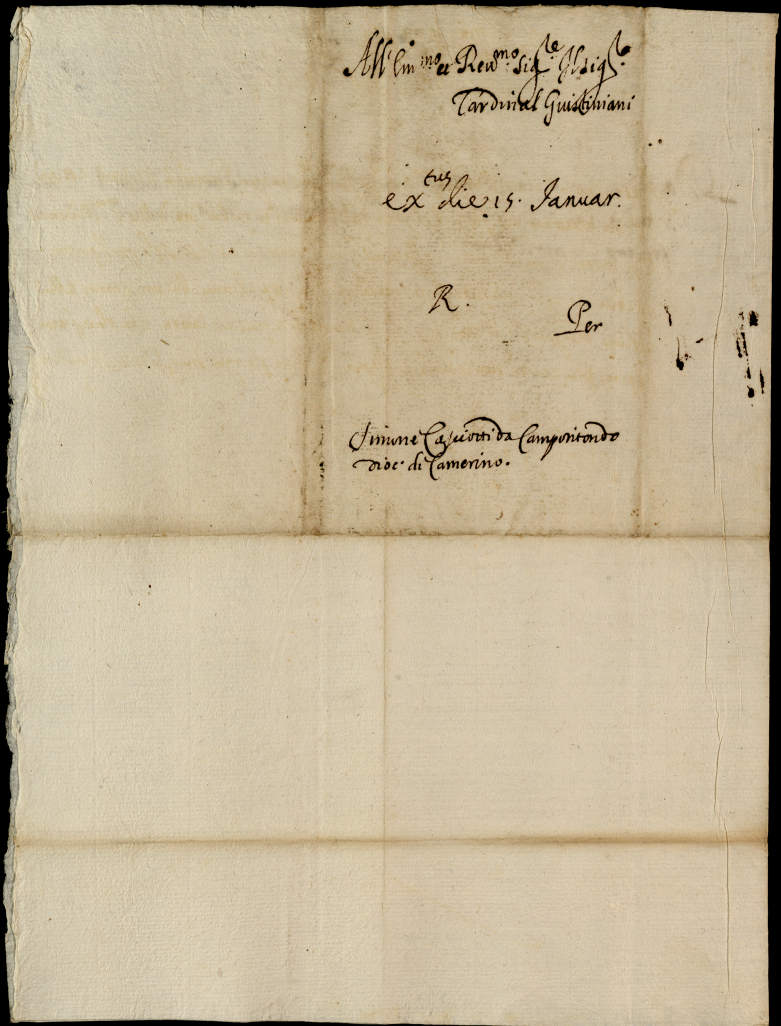 All' Em.mo et Rev.mo Sig.re Il Sig.re
Cardinal Giustiniani
ex.tus die 15. Januar.
R.
Per
Simone da Camporitondo
dioc. di Camerino.